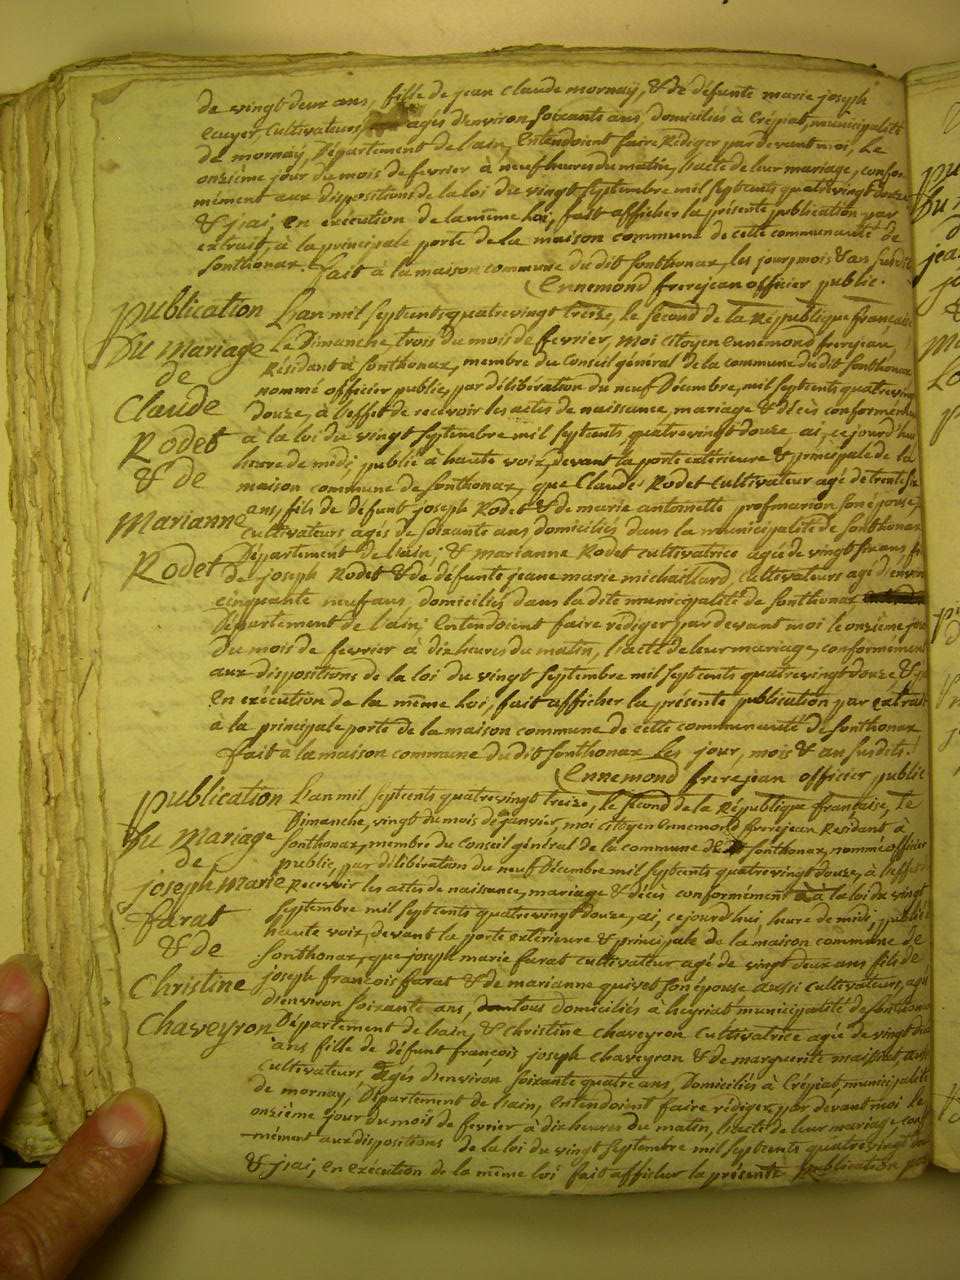 de vingt deux ans, fille de jean Claude mornay, & de défunte marie joseph
Ecuyer Cultivateurs, agés d'environ soixante ans, domiciliés à Crépiat, municipalité
de mornay, Département de l'ain, Entendoient faire Rédiger par devant moi, Le
onzième jour du mois de fevrier à neuf heures du matin, l'acte de leur mariage, confor
mément aux dispositions de la loi du vingt septembre mil septcents quatrevingt douze
& j'ai, en exécution de la mẽme Loi, fait afficher la présente publication par
extrait, à la principale porte de la maison commune de cette communauté de
sonthonax. fait à la maison commune du dit sonthonax, les jour, mois & an susdits
Ennemond frerejean officier public.
publication L'an mil septcents quatrevingt treize, le second de la République française
Du Mariage Le Dimanche, trois du mois de fevrier, moi Citoyen Ennemond frerejean,
Résidant à sonthonax, membre du Conseil général de la commune du dit sonthonax
de
nommé officier public, par délibération du neuf Décembre, mil septcents quatreving
Claude douze, à l'effet de recevoir les actes de naissance, mariage & décès conformément
Rodet à la loi du vingt septembre mil septcents quatrevingt douze, ai, cejourd'hui
heure de midi, publié à haute voix, devant la porte extérieure & principale de la
& de maison commune de sonthonax, que Claude Rodet Cultivateur agé de trente six
ans, fils de défunt joseph Rodet & de marie antoinette profmarion son épouse,
Marianne cultivateurs agés de soixante ans domiciliés dans la municipalité de sonthonax
Département de l'ain; & marianne Rodet cultivatrice agée de vingt six ans fi
Rodet de joseph Rodet & de défunte jeane marie michaillard, cultivateurs agé d'environ
cinquante neuf ans, domiciliés dans la dite municipalité de sonthonax
Département de l'ain; Entendoient faire rédiger par devant moi le onzieme jour
du mois de fevrier à dix heures du matin, l'acte de leur mariage, conformément
aux dispositions de la loi du vingt septembre mil septcents quatrevingt douze &
en exécution de la mẽme Loi, fait afficher la présente publication par extrait
à la principale porte de la maison commune de cette communauté de sonthonax
fait à la maison commune du dit sonthonax Les jour, mois & an susdits.
Ennemond frerejean officier public
publication L'an mil septcents quatrevingt treize, le second de la République française, Le
Dimanche, vingt du mois de janvier, moi Citoyen Ennemond frerejean Résidant à
Du Mariage sonthonax, membre du Conseil général de la commune de sonthonax, nommé officier
de public, par délibération du neuf Décembre mil septcents quatrevingt douze, à l'effet
joseph Marie recevoir les actes de naissance, mariage & décès conformément à la loi du vingt
septembre mil septcents quatrevingt douze, ai, cejourd'hui, heure de midi, publié
farat haute voix, devant la porte extérieure & principale de la maison commune de
& de sonthonax, que joseph marie farat cultivateur agé de vingt deux ans fils de
joseph françois farat & de marianne quivet son épouse aussi cultivateurs, agés
Christine d'environ soixante ans, tous domiciliés à heyriat municipalité de sonthonax
Chaveyron Département de l'ain, & Christine Chaveyron Cultivatrice agée de vingt
ans fille de défunt françois joseph Chaveyron & de marguerite
cultivateurs agés d'environ soixante quatre ans, Domiciliés à Crépiat, municipalité
de mornay, Département de l'ain, Entendoient faire rédiger, par devant moi le
onzième jour du mois de fevrier à dix heures du matin, l'acte de leur mariage, conf
mément aux dispositions de la loi du vingt septembre mil septcents quatrevingt
& j'ai, en exécution de la mẽme loi fait afficher la présente publication par